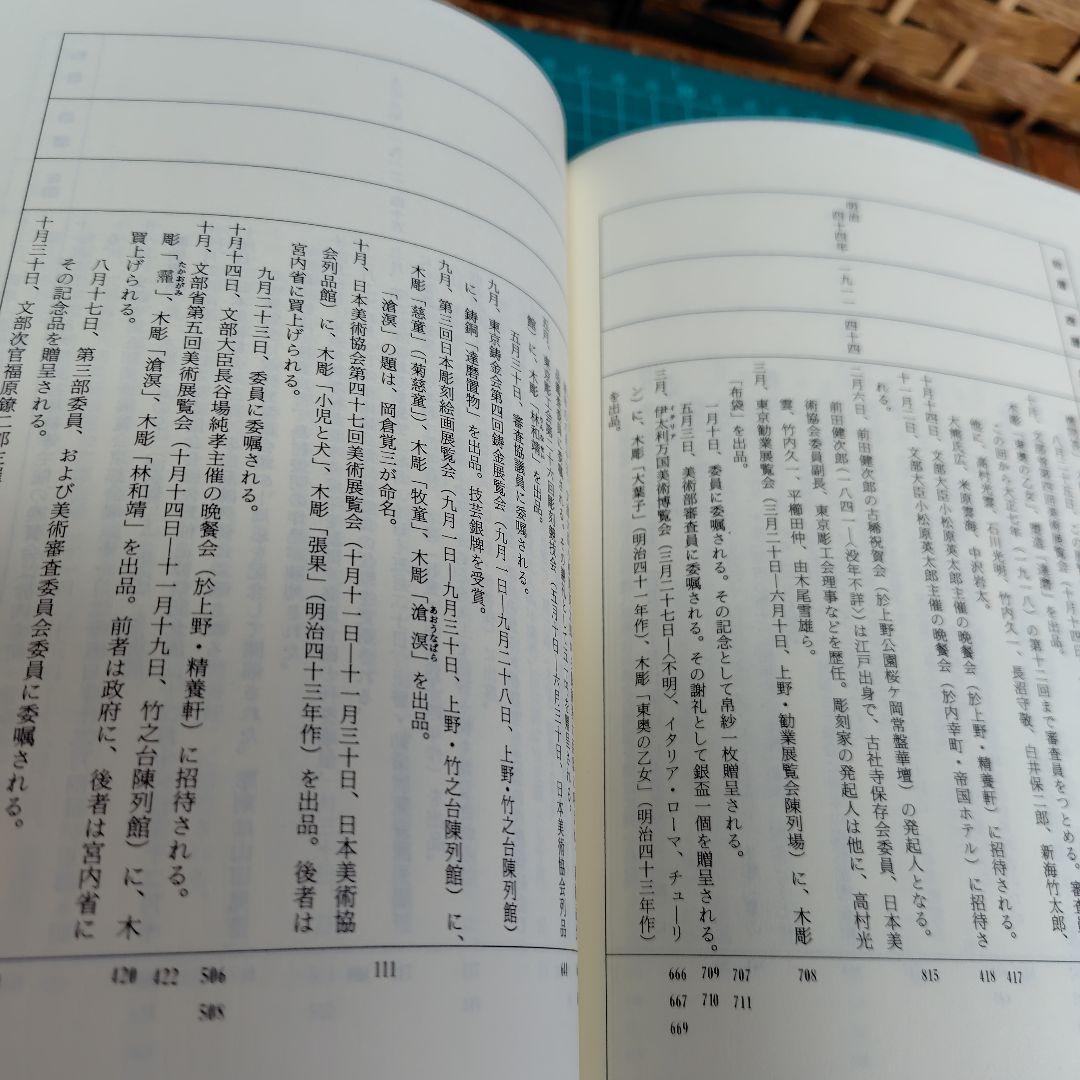 明治
四十四年
一九一一
四十四
れる。
十一月二日、文部大臣小松原英太郎主催の晩餐会（於内幸町・帝国ホテル）に招待さ
二月六日、前田健次郎の古稀祝賀会（於上野公園桜ケ岡常盤華壇）の発起人となる。
前田健次郎（一八四一―〈没年不詳〉）は江戸出身で、古社寺保存会委員、日本美
術協会委員副長、東京彫工会理事などを歴任。彫刻家の発起人は他に、高村光
雲、竹内久一、平櫛田中、由木尾雪雄ら。
三月、東京勧業展覧会（三月二十日―六月十日、上野・勧業展覧会陳列場）に、木彫
「布袋」を出品。
一月十日、委員に委嘱される。その記念として帛紗一枚贈呈される。
五月三日、美術部審査員に委嘱される。その謝礼として銀盃一個を贈呈される。
三月、伊太利万国美術博覧会（三月二十七日―〈不明〉、イタリア・ローマ、チューリ
イタリア
ン）に、木彫「大葉子」（明治四十一年作）、木彫「東奥の乙女」（明治四十三年作）
を出品。
417
418
815
708
707
711
709
710
666
667
669
館）に、木彫「林和靖」を出品。
五月三十日、審査協議員に委嘱される。
九月、東京鋳金会第四回鋳金展覧会（九月一日―九月二十八日、上野・竹之台陳列館）
に、鋳銅「達磨置物」を出品。技芸銀牌を受賞。
九月、第三回日本彫刻絵画展覧会（九月一日―九月三十日、上野・竹之台陳列館）に、
木彫「慈童」（「菊慈童」）、木彫「牧童」、木彫「滄溟」を出品。
あおうなばら
「滄溟」の題は、岡倉覚三が命名。
十月、日本美術協会第四十七回美術展覧会（十月十一日―十一月三十日、日本美術協
会列品館）に、木彫「小児と犬」、木彫「張果」（明治四十三年作）を出品。後者は
宮内省に買上げられる。
九月二十三日、委員に委嘱される。
十月十四日、文部大臣長谷場純孝主催の晩餐会（於上野・精養軒）に招待される。
十月、文部省第五回美術展覧会（十月十四日―十一月十九日、竹之台陳列館）に、木
彫「龗」、木彫「滄溟」、木彫「林和靖」を出品。前者は政府に、後者は宮内省に
たかおがみ
買上げられる。
八月十七日、第三部委員、および美術審査委員会委員に委嘱される。
その記念品を贈呈される。
十月三十日、文部次官福原鐐二郎
111
506
508
422
420